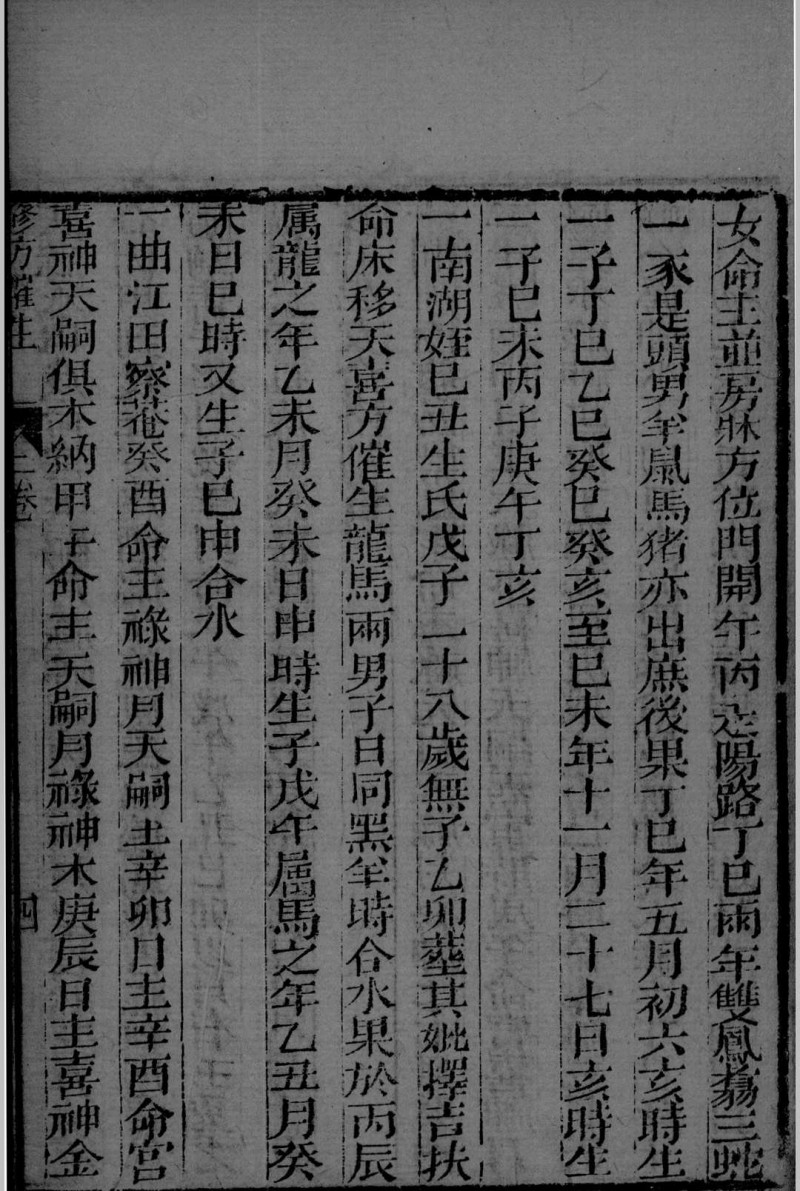 女命主並房牀方位門開午丙走陽路丁巳兩年雙鳳舞三蛇
一豕是頭男羊鼠馬猪亦出庶後果丁巳年五月初六亥時生
一子丁巳乙巳癸巳癸亥至巳未年十一月二十七日亥時生
一子巳未丙子庚午丁亥
一南湖姪巳丑生氏戊子二十八歲無子乙卯塟其妣擇吉扶
命床移天喜方催生龍馬兩男子日同黑羊時合水果於丙辰
属龍之年乙未月癸未日申時生子戊午属馬之年乙丑月癸
未日巳時又生子巳申合水
一曲江田察菴癸酉命主祿神月天嗣土辛卯日主辛酉命宮
喜神天嗣俱木納甲子命主天嗣月祿神木庚辰日主喜神金
修方催生 上卷 四